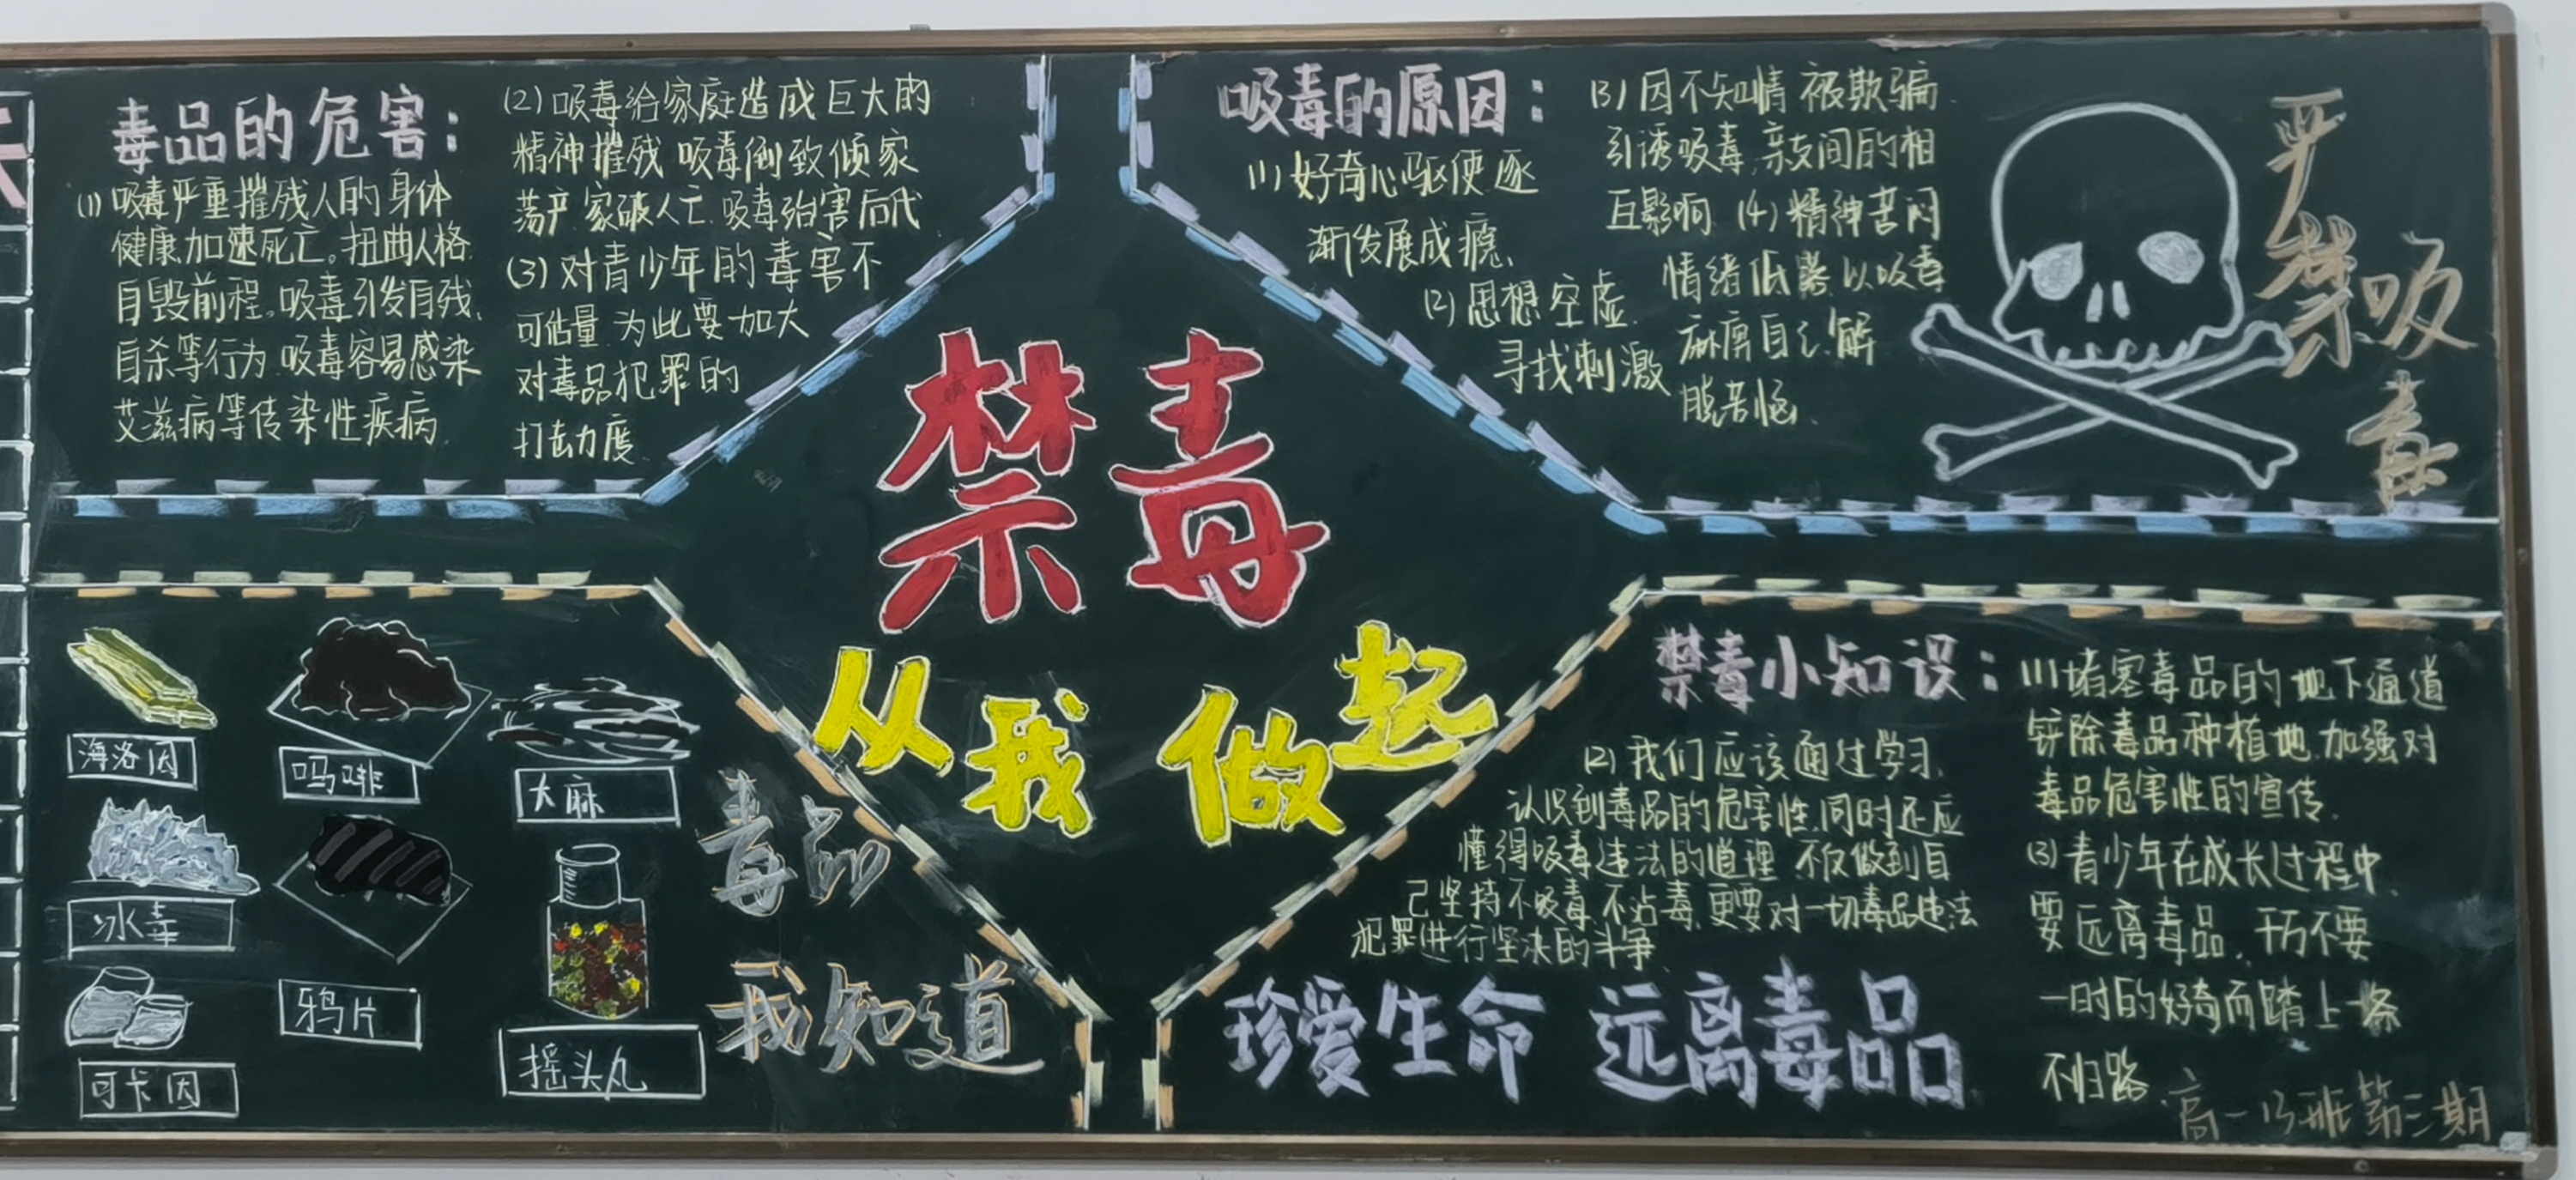 毒品的危害：
(1) 吸毒严重摧残人的身体
健康.加速死亡。扭曲人格.
自毁前程。吸毒引发自残、
自杀等行为.吸毒容易感染
艾滋病等传染性疾病.
(2) 吸毒给家庭造成巨大的
精神摧残 吸毒倒致倾家
荡产.家破人亡.吸毒殆害后代
(3) 对青少年的毒害不
可估量.为此要加大
对毒品犯罪的
打击力度.
吸毒的原因：
(1) 好奇心驱使逐
渐发展成瘾、
(2) 思想空虚.
寻找刺激
(3) 因不知情 被欺骗.
引诱吸毒.亲友间的相
互影响 (4) 精神苦闷
情绪低落.以吸毒
麻痹自己.解
脱苦恼.
严禁吸毒
禁毒
从我做起
海洛因
吗啡
大麻
冰毒
鸦片
摇头丸
可卡因
毒品
我知道
禁毒小知识：
(1) 堵塞毒品的地下通道
铲除毒品种植地.加强对
毒品危害性的宣传.
(2) 我们应该通过学习.
认识到毒品的危害性.同时还应
懂得吸毒违法的道理 不仅做到自
己坚持不吸毒.不沾毒.更要对一切毒品违法
犯罪进行坚决的斗争
(3) 青少年在成长过程中.
要远离毒品.千万不要
一时的好奇而踏上一条
不归路.
珍爱生命 远离毒品
高一13班第三期